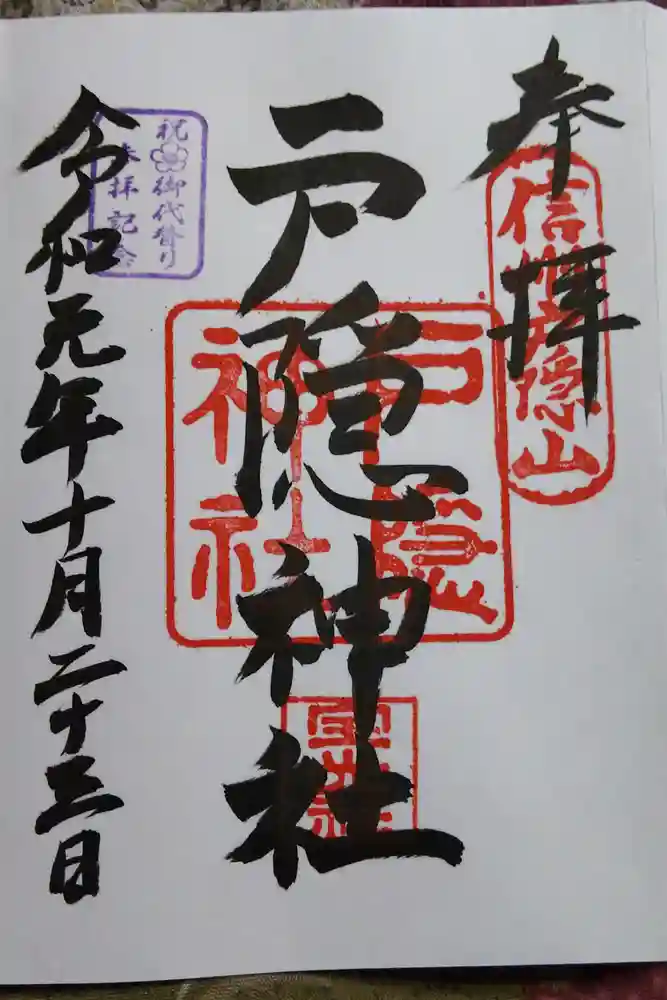 奉拝
信州戸隠山
戸隠神社
戸隠
神社
宝光社
祝御代替り
参拝記念
令和元年十月二十三日